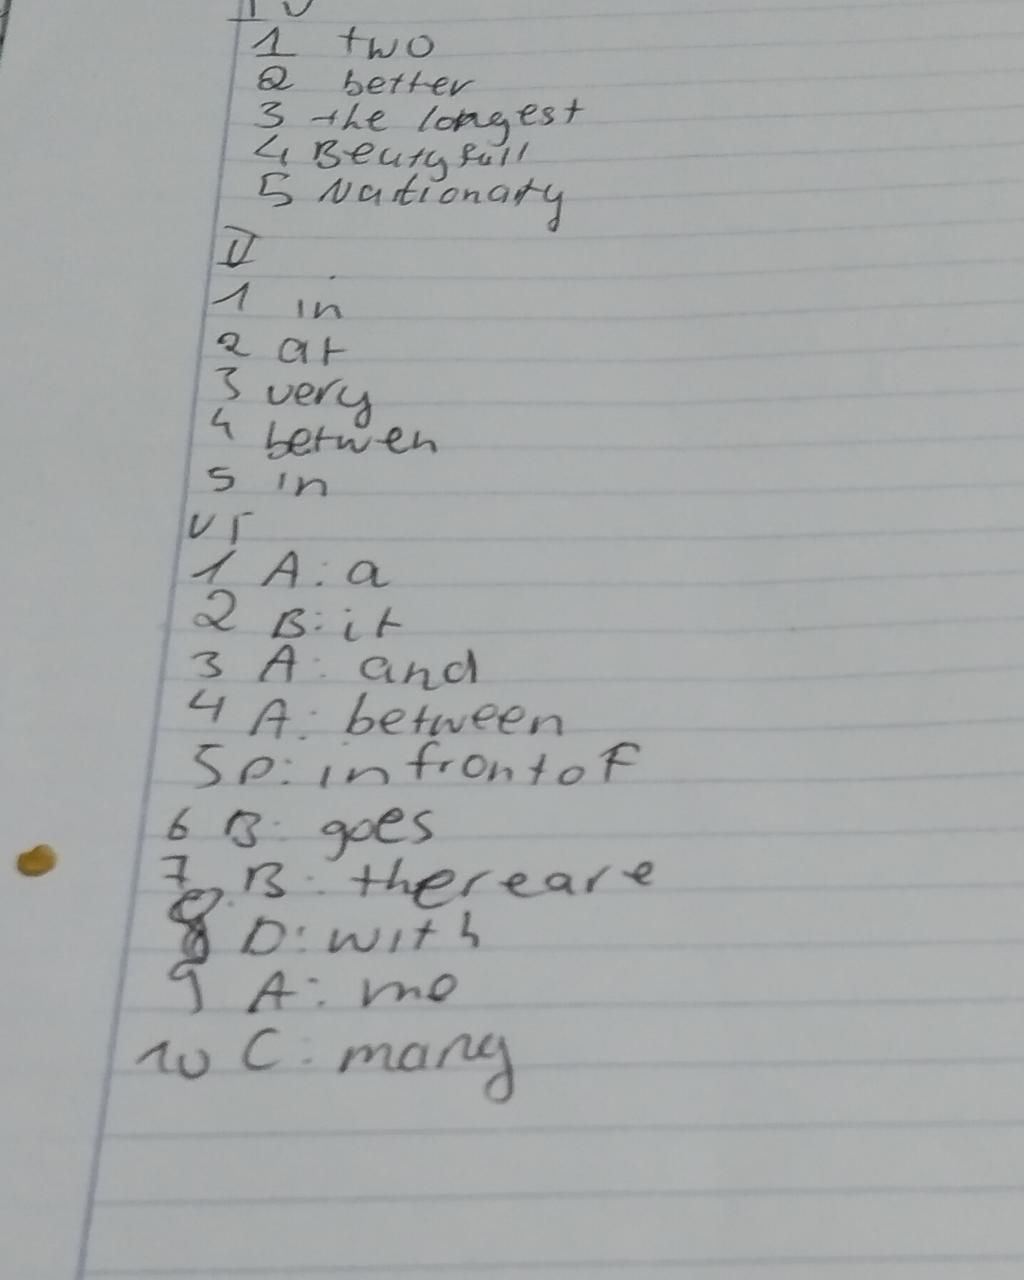 IV
1 two
2 better
3 the longest
4 Beutyfull
5 Nationaty
V
1 in
2 at
3 very
4 betwen
5 in
VI
1 A: a
2 B: it
3 A: and
4 A: between
5 D: infrontoF
6 B: goes
7 B: thereare
8 D: with
9 A: me
10 C: many